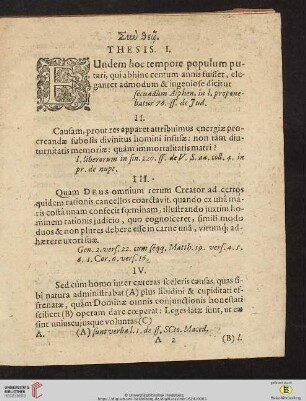 Σὺν Θεῷ.
THESIS. I.
EUndem hoc tempore populum pu-
tari, qui abhinc centum annis fuisset, ele-
ganter admodum & ingeniose dicitur
secundum Alphen. in l. propone-
batur 76. ff. de Jud.
II.
Causam, prout res apparet attribuimus energiæ pro-
creandæ sobolis divinitus homini insitæ: non tàm diu-
turnitatis memoriæ: quàm immortalitatis matri?
l. liberorum in fin. 220. ff. de V. S. aa. coll. 4. in
pr. de nupt.
III.
Quam DEUS omnium rerum Creator ad certos
quidem rationis cancellos coarctavit, quando ex unâ ma-
ris costâ unam confecit fœminam, illustrando justum ho-
minem rationis judicio, quo cognosceret, simili modo
duos & non plures debere esse in carne unâ, virumq; ad-
hærere uxori suæ.
Gen. 2. vers. 22. cum seqq. Matth. 19. vers. 4. 5.
6. 1. Cor. 6. vers. 16.
IV.
Sed cùm homo inter cæteras sceleris causas, quas si-
bi natura administrabat (A) plus libidini & cupiditati ef-
frenatæ, quàm Dominæ omnis conjunctionis honestati
scilicet (B) operam dare cœperat: Leges latæ sunt, ut es-
sint uniuscujusque voluntas (C)
A. (A) sunt verba l. 1. de ff. SCto. Maced.
A 2 (B) l.